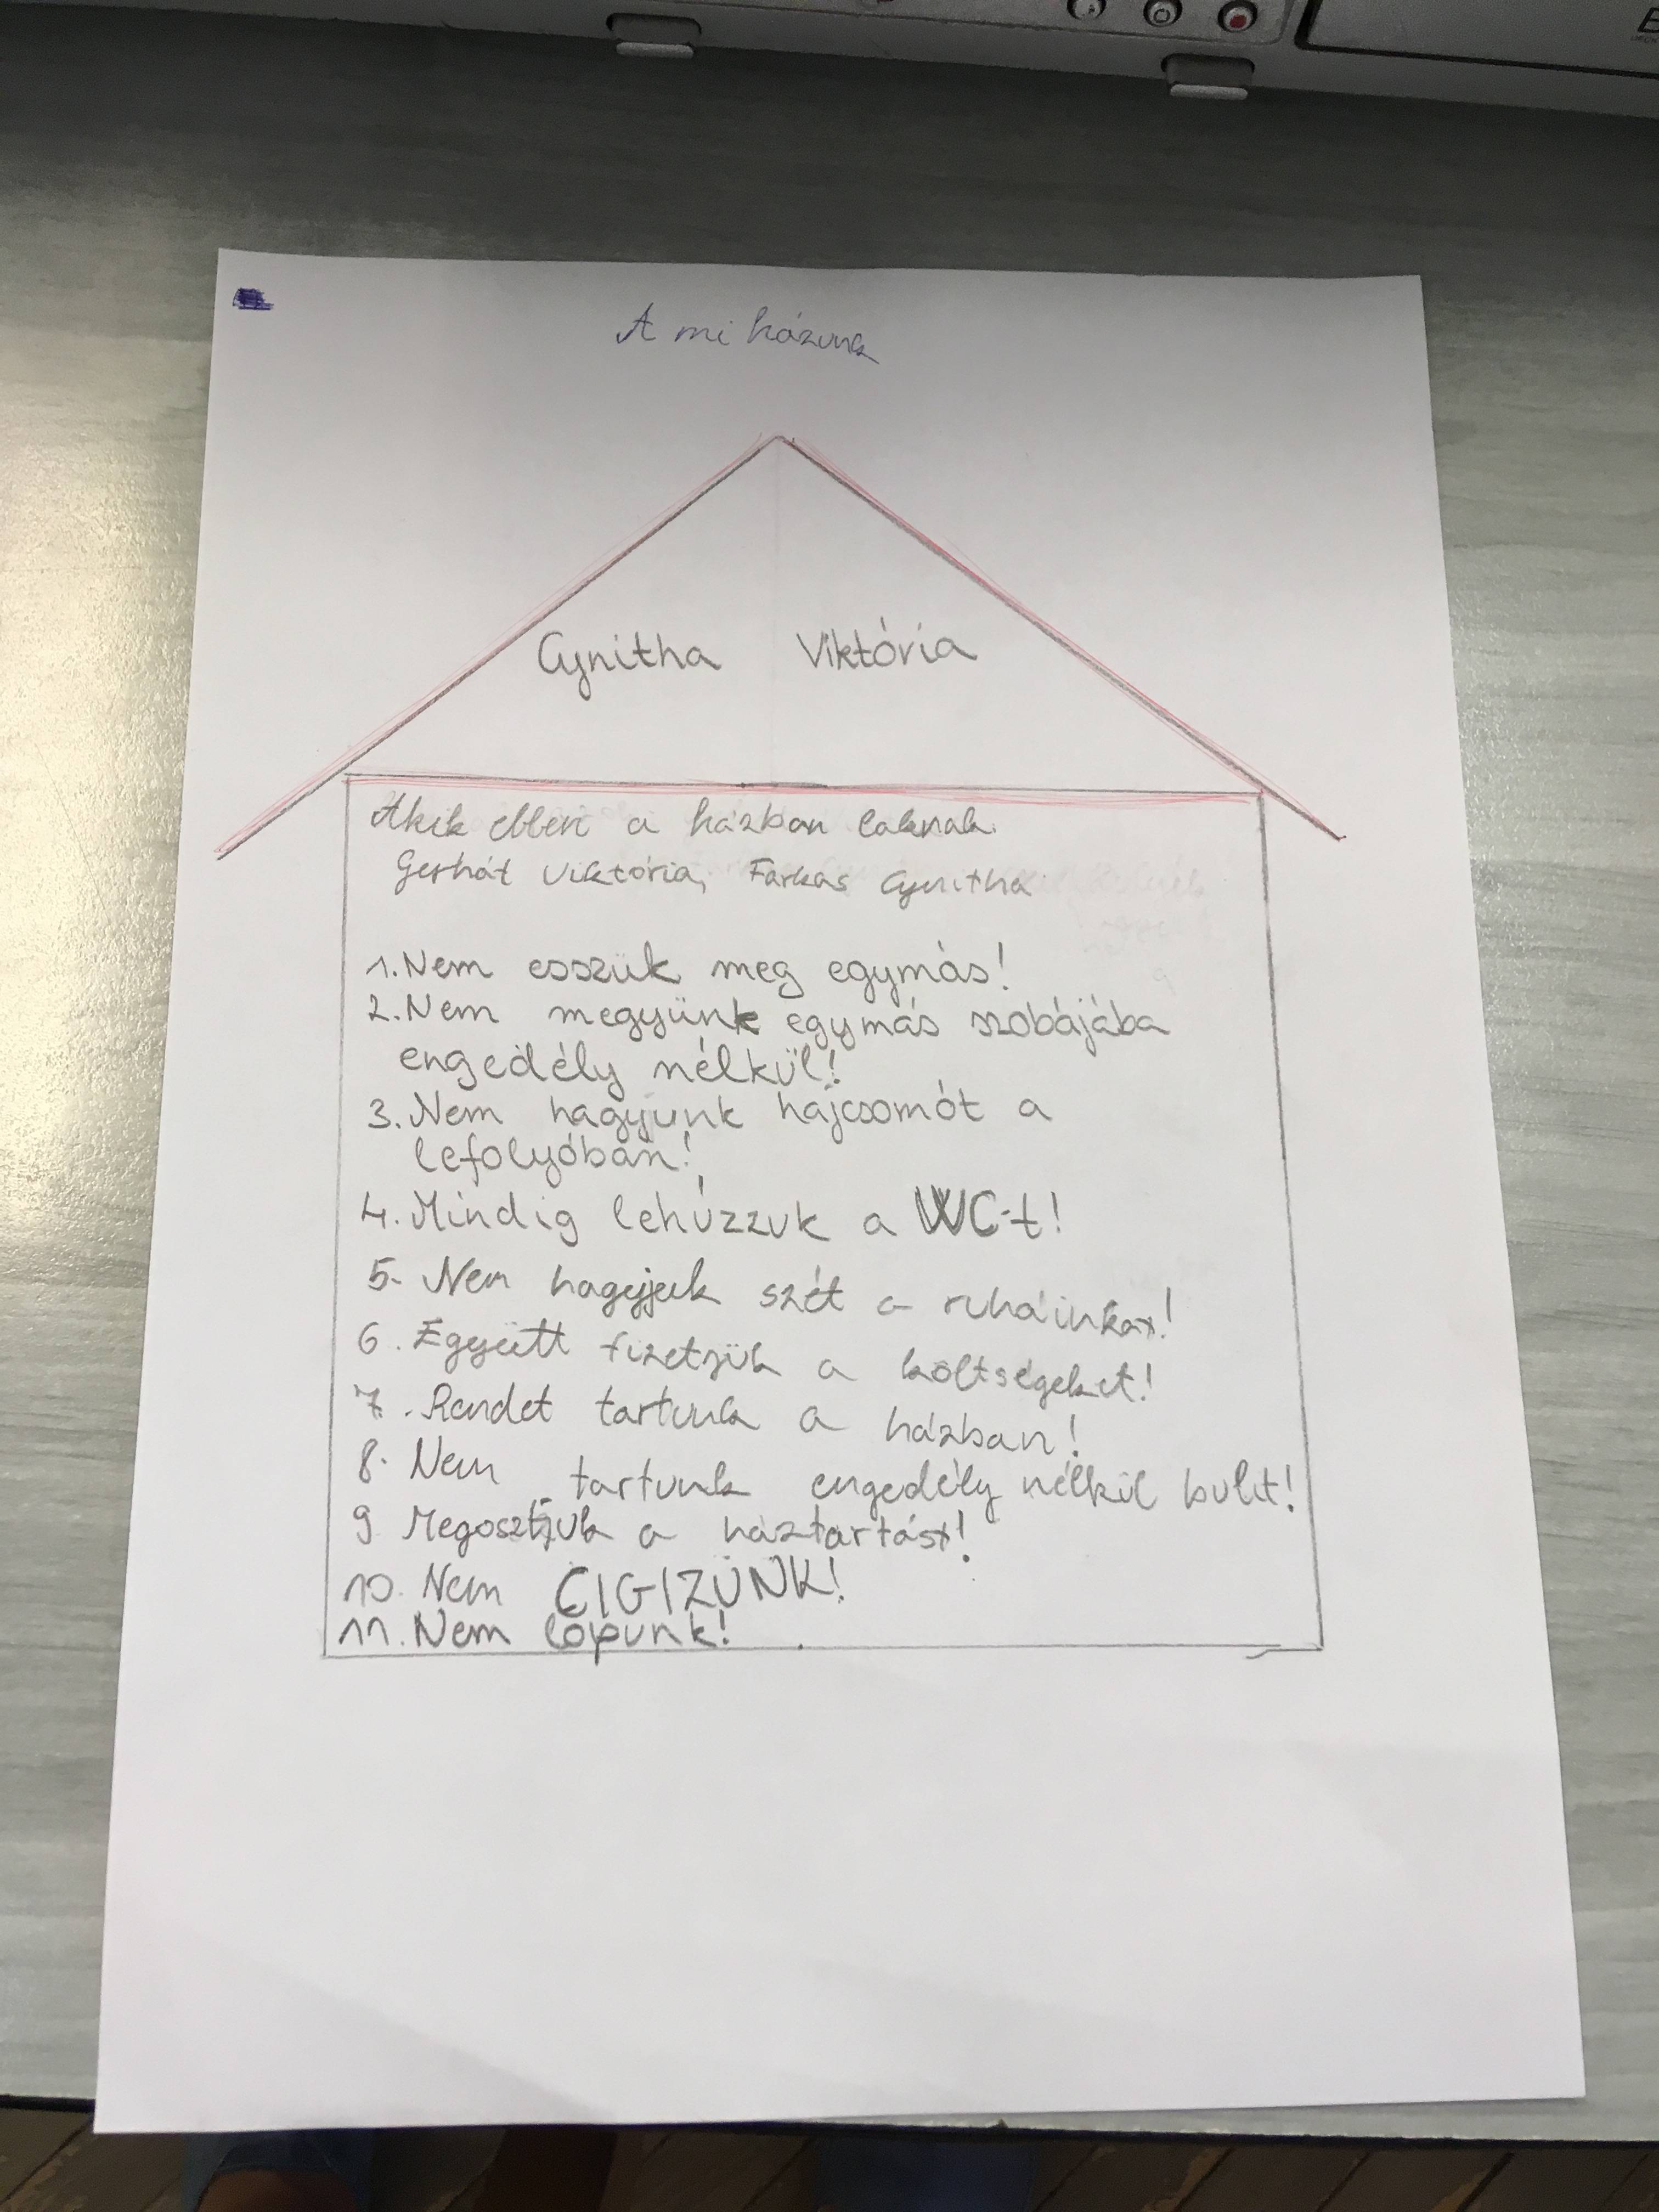 A mi házunk
Cynitha Viktória
Akik ebben a házban laknak
Gerhát Viktória, Farkas Cynitha
1. Nem esszük meg egymás!
2. Nem megyünk egymás szobájába
engedély nélkül!
3. Nem hagyunk hajcsomót a
lefolyóban!
4. Mindig lehúzzuk a WC-t!
5. Nem hagyjuk szét a ruháinkat!
6. Együtt fizetjük a költségeket!
7. Rendet tartunk a házban!
8. Nem tartunk engedély nélkül bulit!
9. Megosztjuk a háztartást!
10. Nem CIGIZÜNK!
11. Nem lopunk!